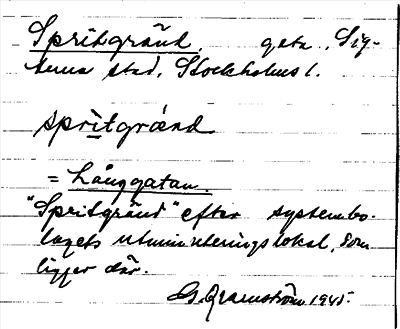 Spritgränd, gata, Sig-
tuna stad, Stockholms l.
sprìtgränd
= Långgatan.
"Spritgränd" efter systembo-
lagets utminuteringslokal, som
ligger där.
1945